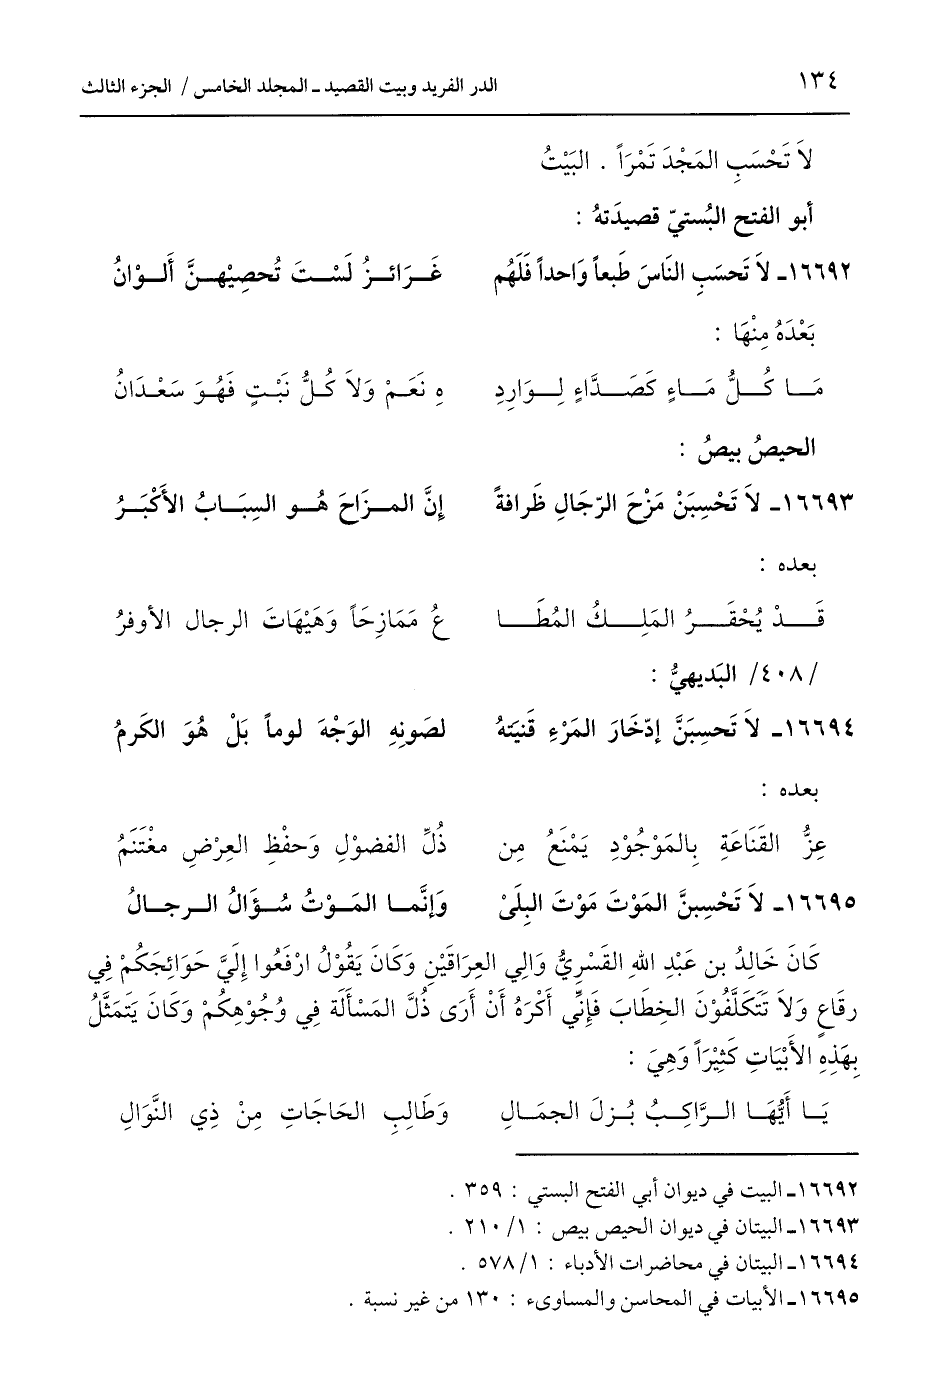 ١٣٤ الدر الفريد وبيت القصيد ـ المجلد الخامس / الجزء الثالث
لاَ تَحْسَبِ المَجْدَ تَمْرَاً . البَيْتُ
أبو الفتح البُستيّ قصيدَتهُ :
١٦٦٩٢ـ لاَ تَحسَبِ النَاسَ طَبعاً وَاحداً فَلَهُم غَرَائـزُ لَسْـتَ تُحصِيْهـنَّ ألـوَانُ
بَعْدَهُ مِنْهَا :
مَـا كُـلُّ مَـاءٍ كَصَـدَّاءٍ لِـوَارِدِ هِ نَعَـمْ وَلاَ كُـلُّ نَبْـتٍ فَهُـوَ سَعْـدَانُ
الحيصُ بيصُ :
١٦٦٩٣ـ لاَ تَحْسِبَنْ مَزْحَ الرّجَالِ ظَرافةً إنَّ المـزَاحَ هُـو السِبَـابُ الأَكْبَـرُ
بعده :
قَـدْ يُحْقَـرُ المَلِـكُ المُطَـا عُ مَمَازِحَاً وَهَيْهَاتَ الرجال الأوفرُ
/٤٠٨/ البَديهيُّ :
١٦٦٩٤ـ لاَ تَحسِبَنَّ إدّخَارَ المَرْءِ قَنيَتهُ لصَونِهِ الوَجْهَ لوماً بَلْ هُوَ الكَرمُ
بعده :
عِزُّ القَنَاعَةِ بِالمَوْجُوْدِ يَمْنَعُ مِن ذُلِّ الفضوْلِ وَحفْظِ العِرْضِ مغْتَنَمُ
١٦٦٩٥ـ لاَ تَحْسِبنَّ المَوْتَ مَوْتَ البِلَىْ وَإنَّمـا المَـوْتُ سُـؤَالُ الـرجـالُ
كَانَ خَالِدُ بن عَبْدِ اللهِ القَسْرِيُّ وَالِي العِرَاقَيْنِ وَكَانَ يَقُوْلُ ارْفَعُوا إلَيَّ حَوَائِجَكُمْ فِي
رِقَاعٍ وَلاَ تَتَكَلَّفُوْنَ الخِطَابَ فَإنِّي أَكْرَهُ أَنْ أَرَى ذُلَّ المَسْأَلَة فِي وُجُوْهِكُمْ وَكَانَ يَتَمَثَّلُ
بِهَذِهِ الأَبْيَاتِ كَثِيْرَاً وَهِيَ :
يَـا أَيُّهَـا الـرَّاكِـبُ بُـزلَ الجمَـالِ وَطَالِبِ الحَاجَاتِ مِنْ ذِي النَّوَالِ
١٦٦٩٢ـ البيت في ديوان أبي الفتح البستي : ٣٥٩ .
١٦٦٩٣ـ البيتان في ديوان الحيص بيص : ١/ ٢١٠ .
١٦٦٩٤ـ البيتان في محاضرات الأدباء : ١/ ٥٧٨ .
١٦٦٩٥ـ الأبيات في المحاسن والمساوىء : ١٣٠ من غير نسبة .